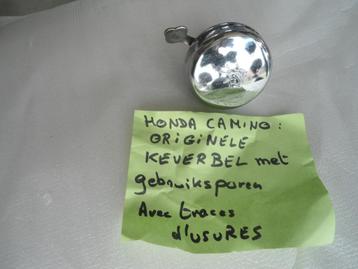 HONDA CAMINO:
ORIGINELE
KEVERBEL met
gebruiksporen
Avec traces
d'USURES